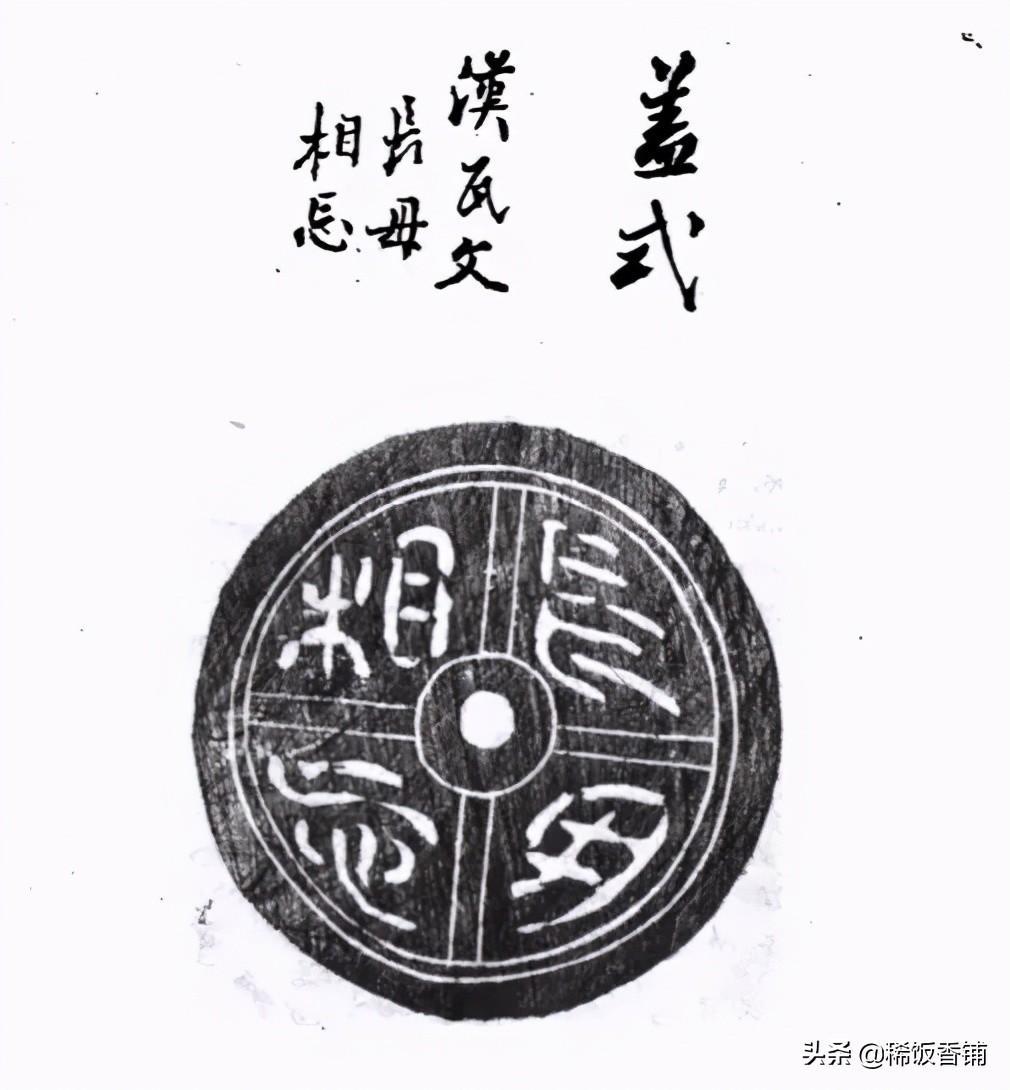 盖式
漢瓦文
長毋
相忘
長毋
相忘
头条 @稀饭香铺